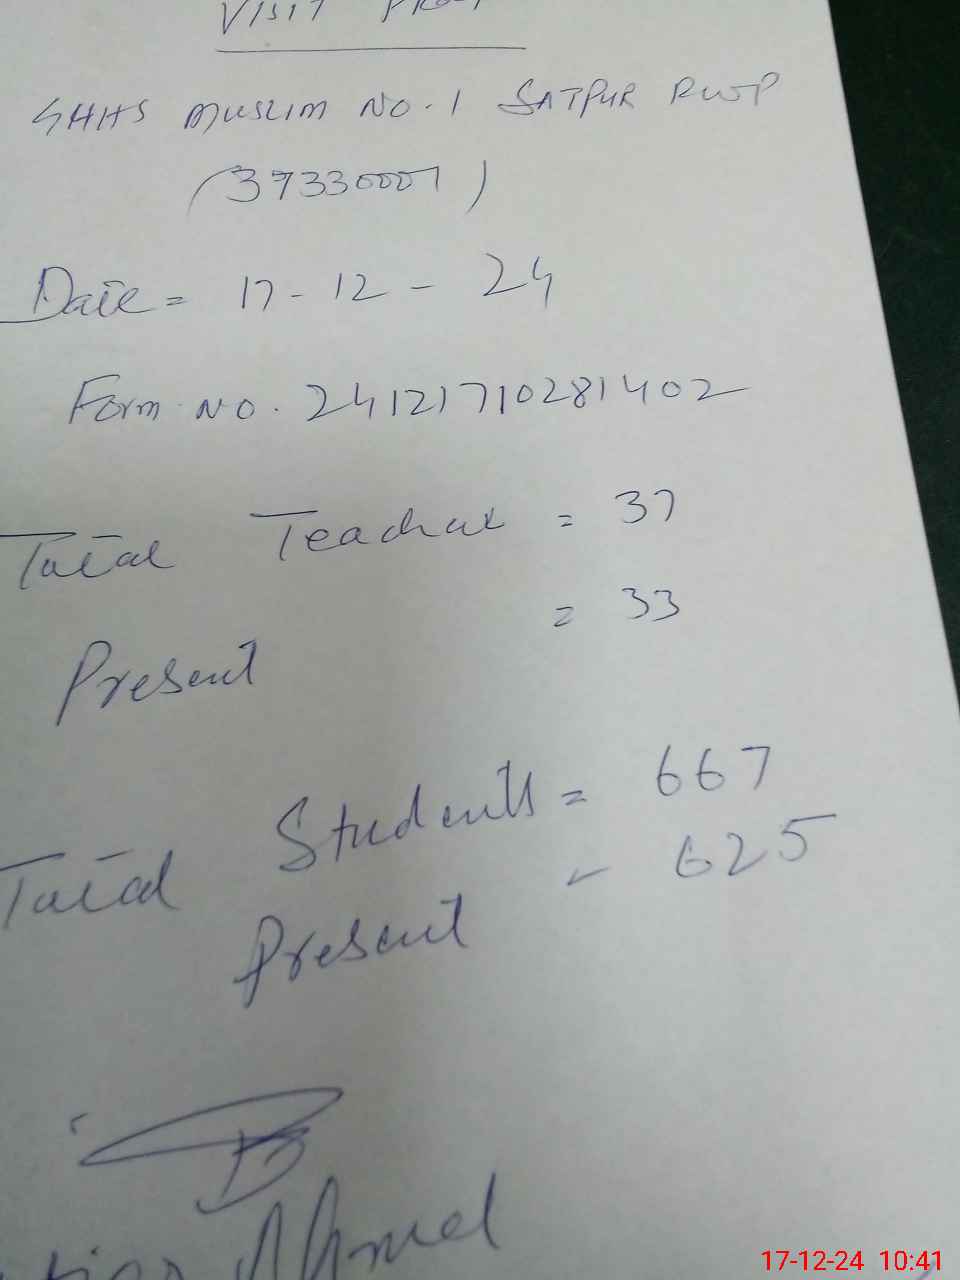 VISIT PROF
GHHS MUSLIM NO. 1 SATPUR RWP
(37330001)
Date = 17-12-24
Form No. 24121710281402
Total Teacher = 37
Present = 33
Total Students = 667
Present = 625
Ahmed
17-12-24 10:41